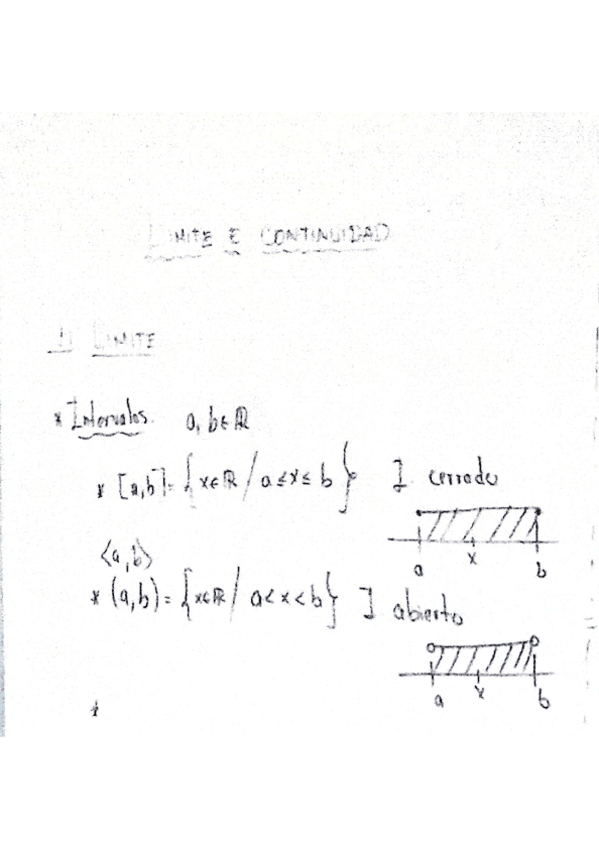 LIMITE E CONTINUIDAD
1) LIMITE
* Intervalos. a, b ∈ ℝ
* [a,b] = { x ∈ ℝ / a ≤ x ≤ b } I cerrado
a x b
<a,b>
* (a,b) = { x ∈ ℝ / a < x < b } I abierto
a x b
*